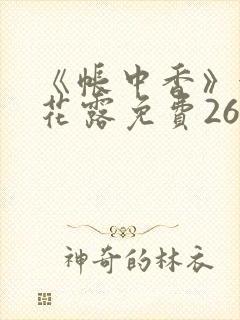 《帐中香》
花露免费26
神奇的林衣